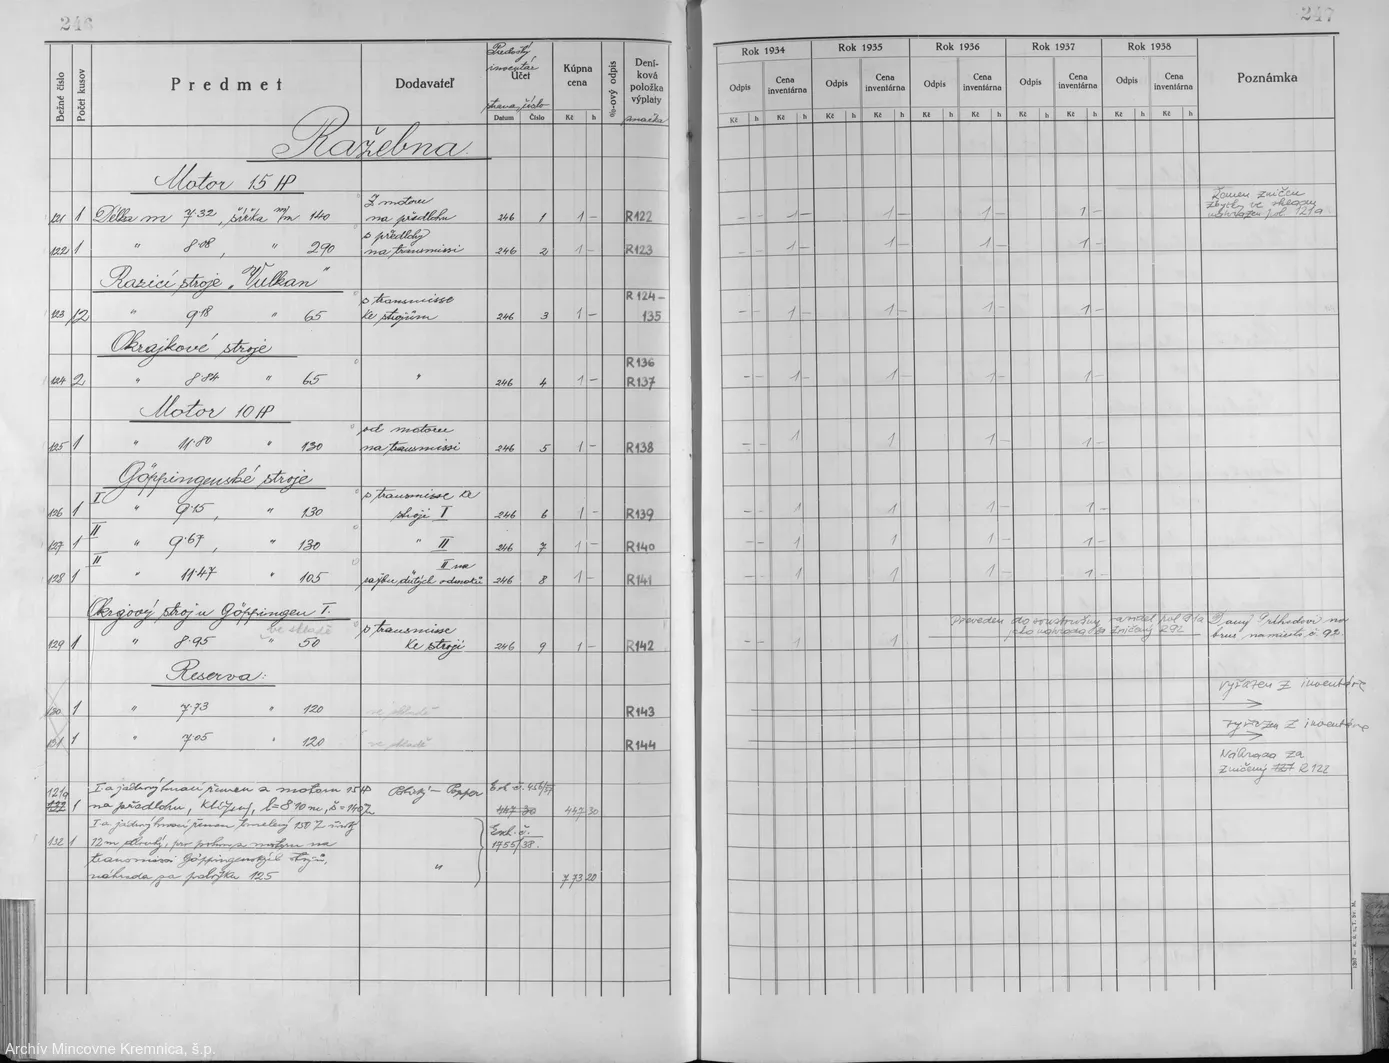 246
247
Bežné číslo
Počet kusov
Predmet
Dodavateľ
inventár
Účet
strana, číslo
Datum Číslo
Kúpna cena
Kč h
%-ový odpis
Deníková položka výplaty
značka
Rok 1934 Rok 1935 Rok 1936 Rok 1937 Rok 1938
Odpis Cena inventárna Odpis Cena inventárna Odpis Cena inventárna Odpis Cena inventárna Odpis Cena inventárna
Kč h Kč h Kč h Kč h Kč h Kč h Kč h Kč h Kč h Kč h
Poznámka
Ražebna
Motor 15 HP
121 1 Délka m 7·32, šířka m/m 140 Z motoru na předlohu 246 1 1 – R122 – – 1 – 1 – 1 – 1 –
Řemen zničen
zbytky ve skladu
nahrazen pol. 121a.
122 1 " 8·08, " 290 s předlohy na transmissi 246 2 1 – R123 – – 1 – 1 – 1 – 1 –
Razicí stroje „Vulkan"
123 12 " 9·18 " 65 s transmisse ke strojům 246 3 1 – R124–135 – – 1 – 1 – 1 – 1 –
Okrajkové stroje
124 2 " 8·84 " 65 " 246 4 1 – R136 R137 – – 1 – 1 – 1 – 1 –
Motor 10 HP
125 1 " 11·80 " 130 od motoru na transmissi 246 5 1 – R138 – – 1 1 – 1 – 1 –
Göppingenské stroje
126 1 I " 9·15, " 130 s transmisse ke stroji I 246 6 1 – R139 – – 1 – 1 – 1 – 1 –
127 1 II " 9·67, " 130 " II 246 7 1 – R140 – – 1 1 – 1 – 1 –
128 1 II " 11·47 " 105 II na dutých 246 8 1 – R141 – – 1 1 – 1 – 1 –
Okrajový stroj u Göppingen I.
ve skladě
129 1 " 8·95 " 50 s transmisse ke stroji 246 9 1 – R142 – – 1 – 1 –
Převeden do pol 91a
jeho náhrada za zničený R92
brus, na miesto č. 92.
Reserva:
130 1 " 7·73 " 120 ve skladě R143
vyřazen z inventáře
131 1 " 7·05 " 120 ve skladě R144
vyřazen z inventáře
Náhrada za
zničený 121 R122
121a
132 1 Ia jádrový hnací řemen z motoru 15 HP
na předlohu, klížený, l=8·10 m, š=140 447 30
132 1 Ia jádrový hnací řemen 150
12 m dlouhý, pro pohon z motoru na
transmissi Göppingenských strojů,
náhrada za položku 125 "
Exh. č.
1755/38.
773 20
Archív Mincovne Kremnica, š.p.